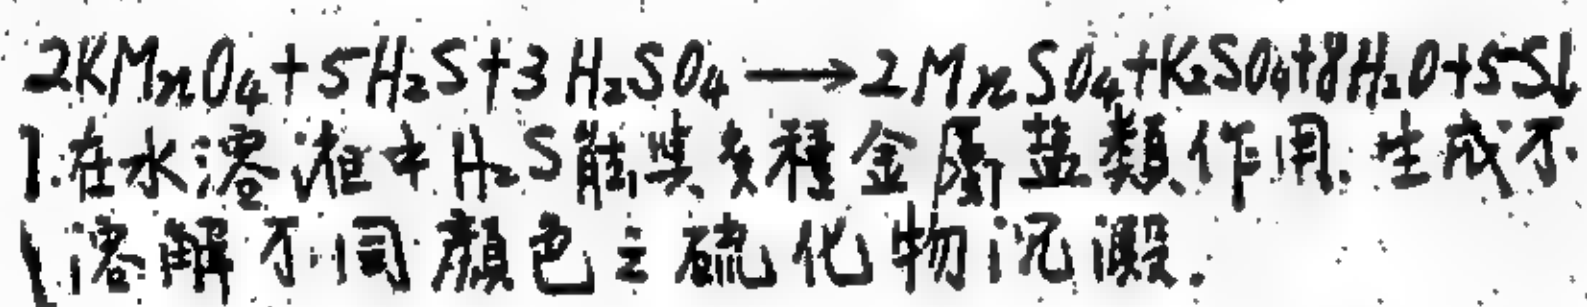 2KMnO₄+5H₂S+3H₂SO₄⟶2MnSO₄+K₂SO₄+8H₂O+5S↓
1.在水溶液中H₂S能與多種金屬鹽類作用.生成不
溶解不同顏色之硫化物沉澱.